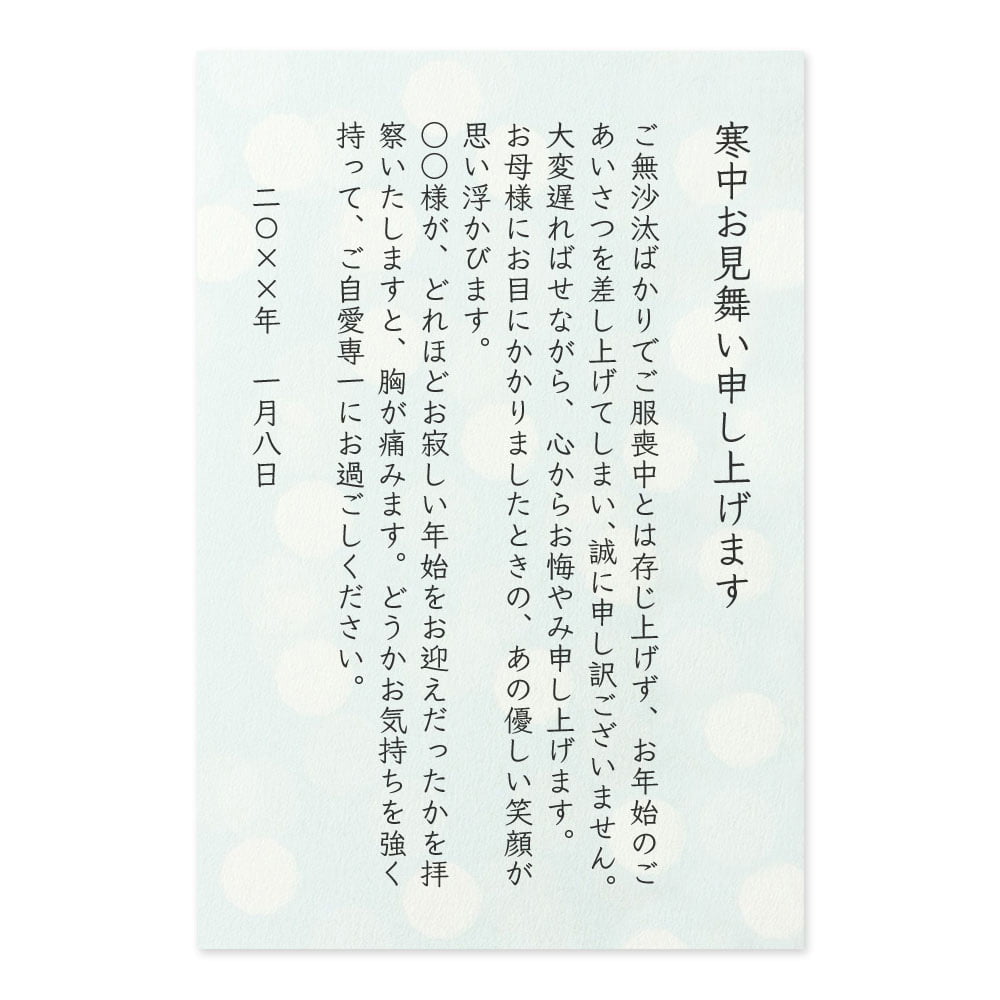 寒中お見舞い申し上げます
ご無沙汰ばかりでご服喪中とは存じ上げず、お年始のご
あいさつを差し上げてしまい、誠に申し訳ございません。
大変遅ればせながら、心からお悔やみ申し上げます。
お母様にお目にかかりましたときの、あの優しい笑顔が
思い浮かびます。
〇〇様が、どれほどお寂しい年始をお迎えだったかを拝
察いたしますと、胸が痛みます。どうかお気持ちを強く
持って、ご自愛専一にお過ごしください。
二〇××年 一月八日